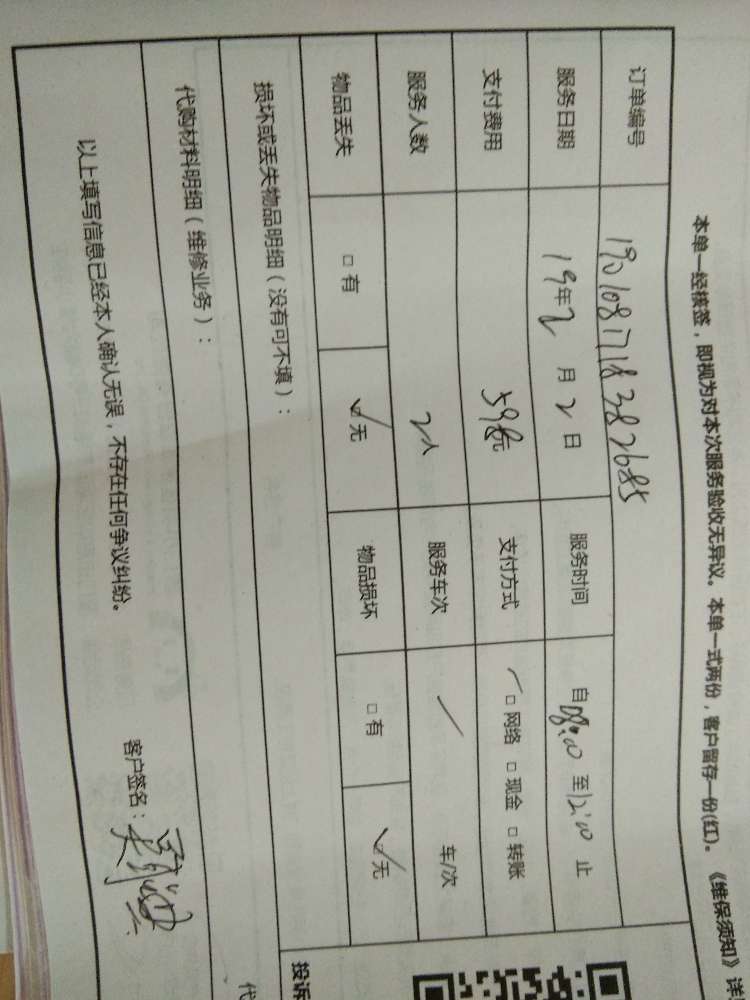 本单一经核签，即视为对本次服务验收无异议。本单一式两份，客户留存一份(红)。《维保须知》详
订单编号 1901081718382685
服务日期 19年2月2日 服务时间 自08:00至12:00止
支付费用 598元 支付方式 □网络 □现金 □转账
服务人数 2人 服务车次 / 车/次
物品丢失 □有 ☑无 物品损坏 □有 ☑无
损坏或丢失物品明细（没有可不填）：
代购材料明细（维修业务）：
以上填写信息已经本人确认无误，不存在任何争议纠纷。
客户签名：
投诉
代